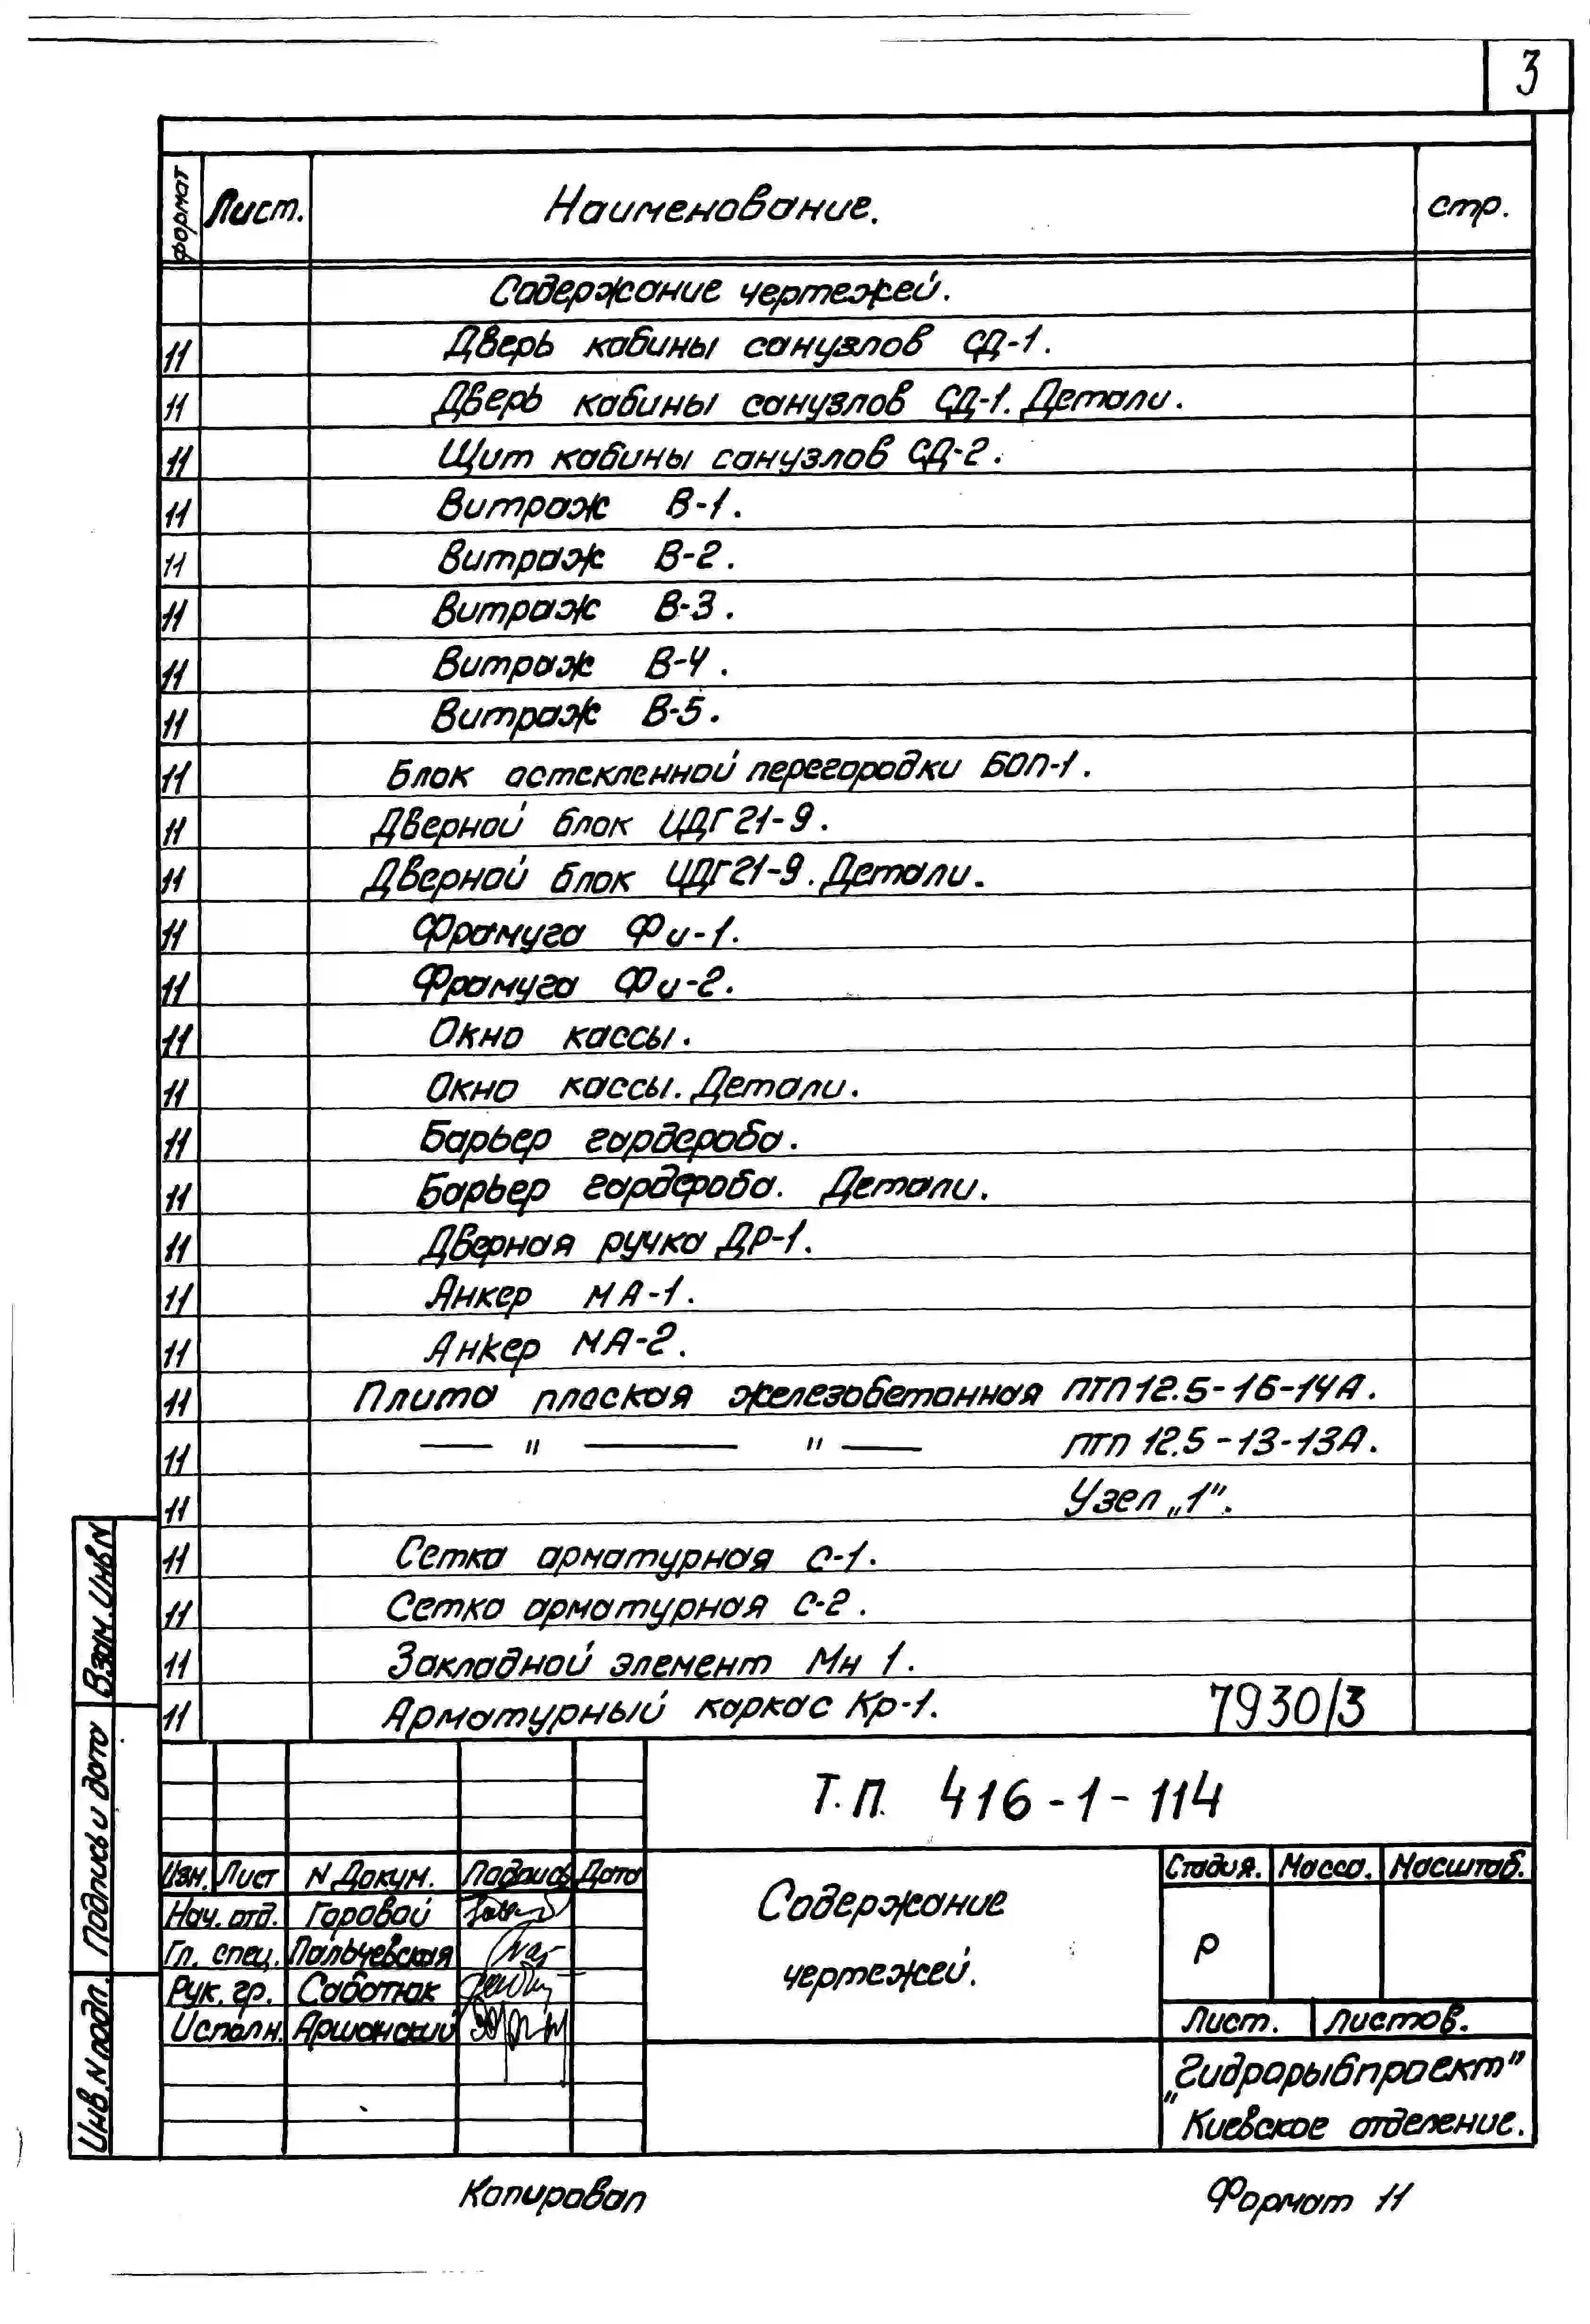 3
формат Лист. Наименование. стр.
Содержание чертежей.
11 Дверь кабины санузлов СД-1.
11 Дверь кабины санузлов СД-1. Детали.
11 Щит кабины санузлов СД-2.
11 Витраж В-1.
11 Витраж В-2.
11 Витраж В-3.
11 Витраж В-4.
11 Витраж В-5.
11 Блок остекленной перегородки БОП-1.
11 Дверной блок ЩДГ21-9.
11 Дверной блок ЩДГ21-9. Детали.
11 Фрамуга Фи-1.
11 Фрамуга Фи-2.
11 Окно кассы.
11 Окно кассы. Детали.
11 Барьер гардероба.
11 Барьер гардероба. Детали.
11 Дверная ручка ДР-1.
11 Анкер МА-1.
11 Анкер МА-2.
11 Плита плоская железобетонная ПТП12.5-16-14А.
11 — " — " — ПТП 12.5-13-13А.
11 Узел „1".
11 Сетка арматурная С-1.
11 Сетка арматурная С-2.
11 Закладной элемент Мн 1.
11 Арматурный каркас Кр-1. 7930/3
Взам. Инв N
Подпись и дата
Инв. N подл.
Т.П. 416-1-114
Изм. Лист N Докум. Подпись Дата
Нач. отд. Горовой
Гл. спец. Пальчевская
Рук. гр. Саботюк
Исполн. Аршанский
Содержание
чертежей.
Стадия. Масса. Масштаб.
Р
Лист. Листов.
„Гидрорыбпроект"
Киевское отделение.
Копировал Формат 11